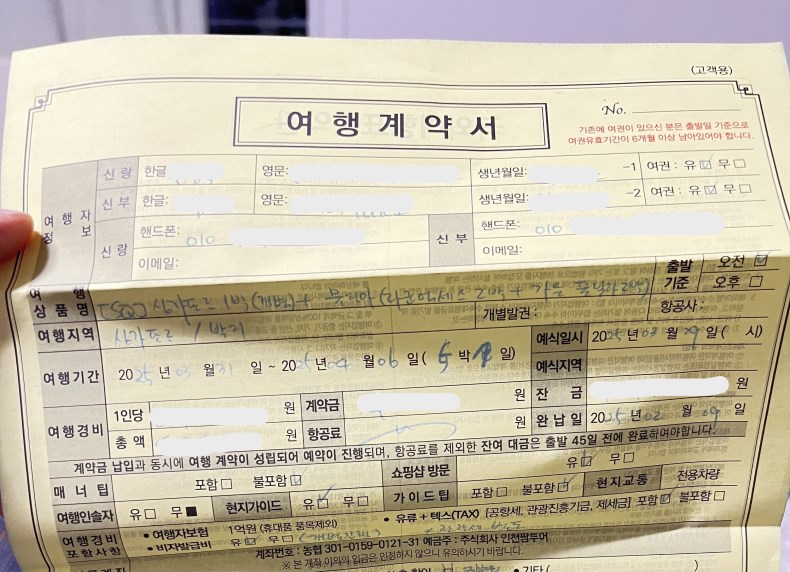 (고객용)
여 행 계 약 서
No.
기존에 여권이 있으신 분은 출발일 기준으로
여권유효기간이 6개월 이상 남아있어야 합니다.
여 행 자 정 보
신 랑 한글 영문: 생년월일: -1 여권 : 유☑ 무☐
신 부 한글: 영문: 생년월일: -2 여권 : 유☑ 무☐
신 랑 핸드폰: 010 신 부 핸드폰: 010
이메일: 이메일:
여 행 상 품 명 싱가포르 1박 출발 기준 오전☑ 오후☐
개별발권 : 항공사 :
여행지역 싱가포르 / 발리 예식일시 2025년 03월 29일 ( 시)
여행기간 2025년 03월 31일 ~ 2025년 04월 06일( 5박 일) 예식지역
여행경비 1인당 원 계약금 원 잔 금 원
총 액 원 항공료 원 완 납 일 2025년 02월 09일
계약금 납입과 동시에 여행 계약이 성립되어 예약이 진행되며, 항공료를 제외한 잔여 대금은 출발 45일 전에 완료하여야합니다.
매 너 팁 포함☐ 불포함☑ 쇼핑샵 방문 유☑ 무☐
여행인솔자 유☐ 무■ 현지가이드 유☑ 무☐ 가 이 드 팁 포함☐ 불포함☑ 현 지 교 통 전용차량
여행경비 포함사항 • 여행자보험 1억원 (휴대품 품목제외) • 유류 + 텍스(TAX) [공항세, 관광진흥기금, 제세금] 포함☑ 불포함☐
• 비자발급비 유☑ 무☐
계좌번호 : 농협 301-0159-0121-31 예금주 : 주식회사 인천팜투어
※ 본 계좌 이외의 입금은 인정하지 않으니 유의하시기 바랍니다.
• 기타 (